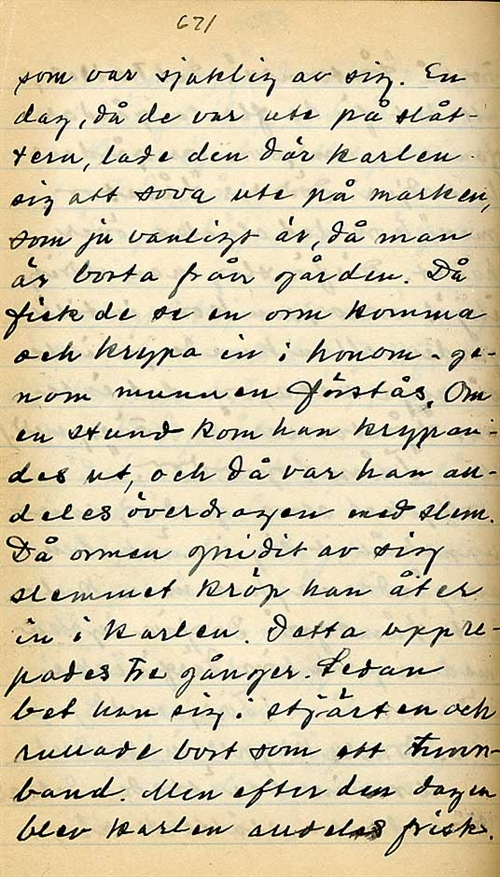 671
som var sjuklig av sig. En
dag, då de var ute på slåt-
tern, lade den där karlen
sig att sova ute på marken,
som ju vanligt är, då man
är borta från gården. Då
fick de se en orm komma
och krypa in i honom - ge-
nom munnen förstås. Om
en stund kom han krypan-
des ut, och då var han an-
deles överdragen med slem.
Då ormen gnidit av sig
slemmet kröp han åter
in i karlen. Detta uppre-
pades tre gånger. Sedan
bet han sig i stjärten och
rullade bort som ett tunn-
band. Men efter den dagen
blev karlen andeles frisk.